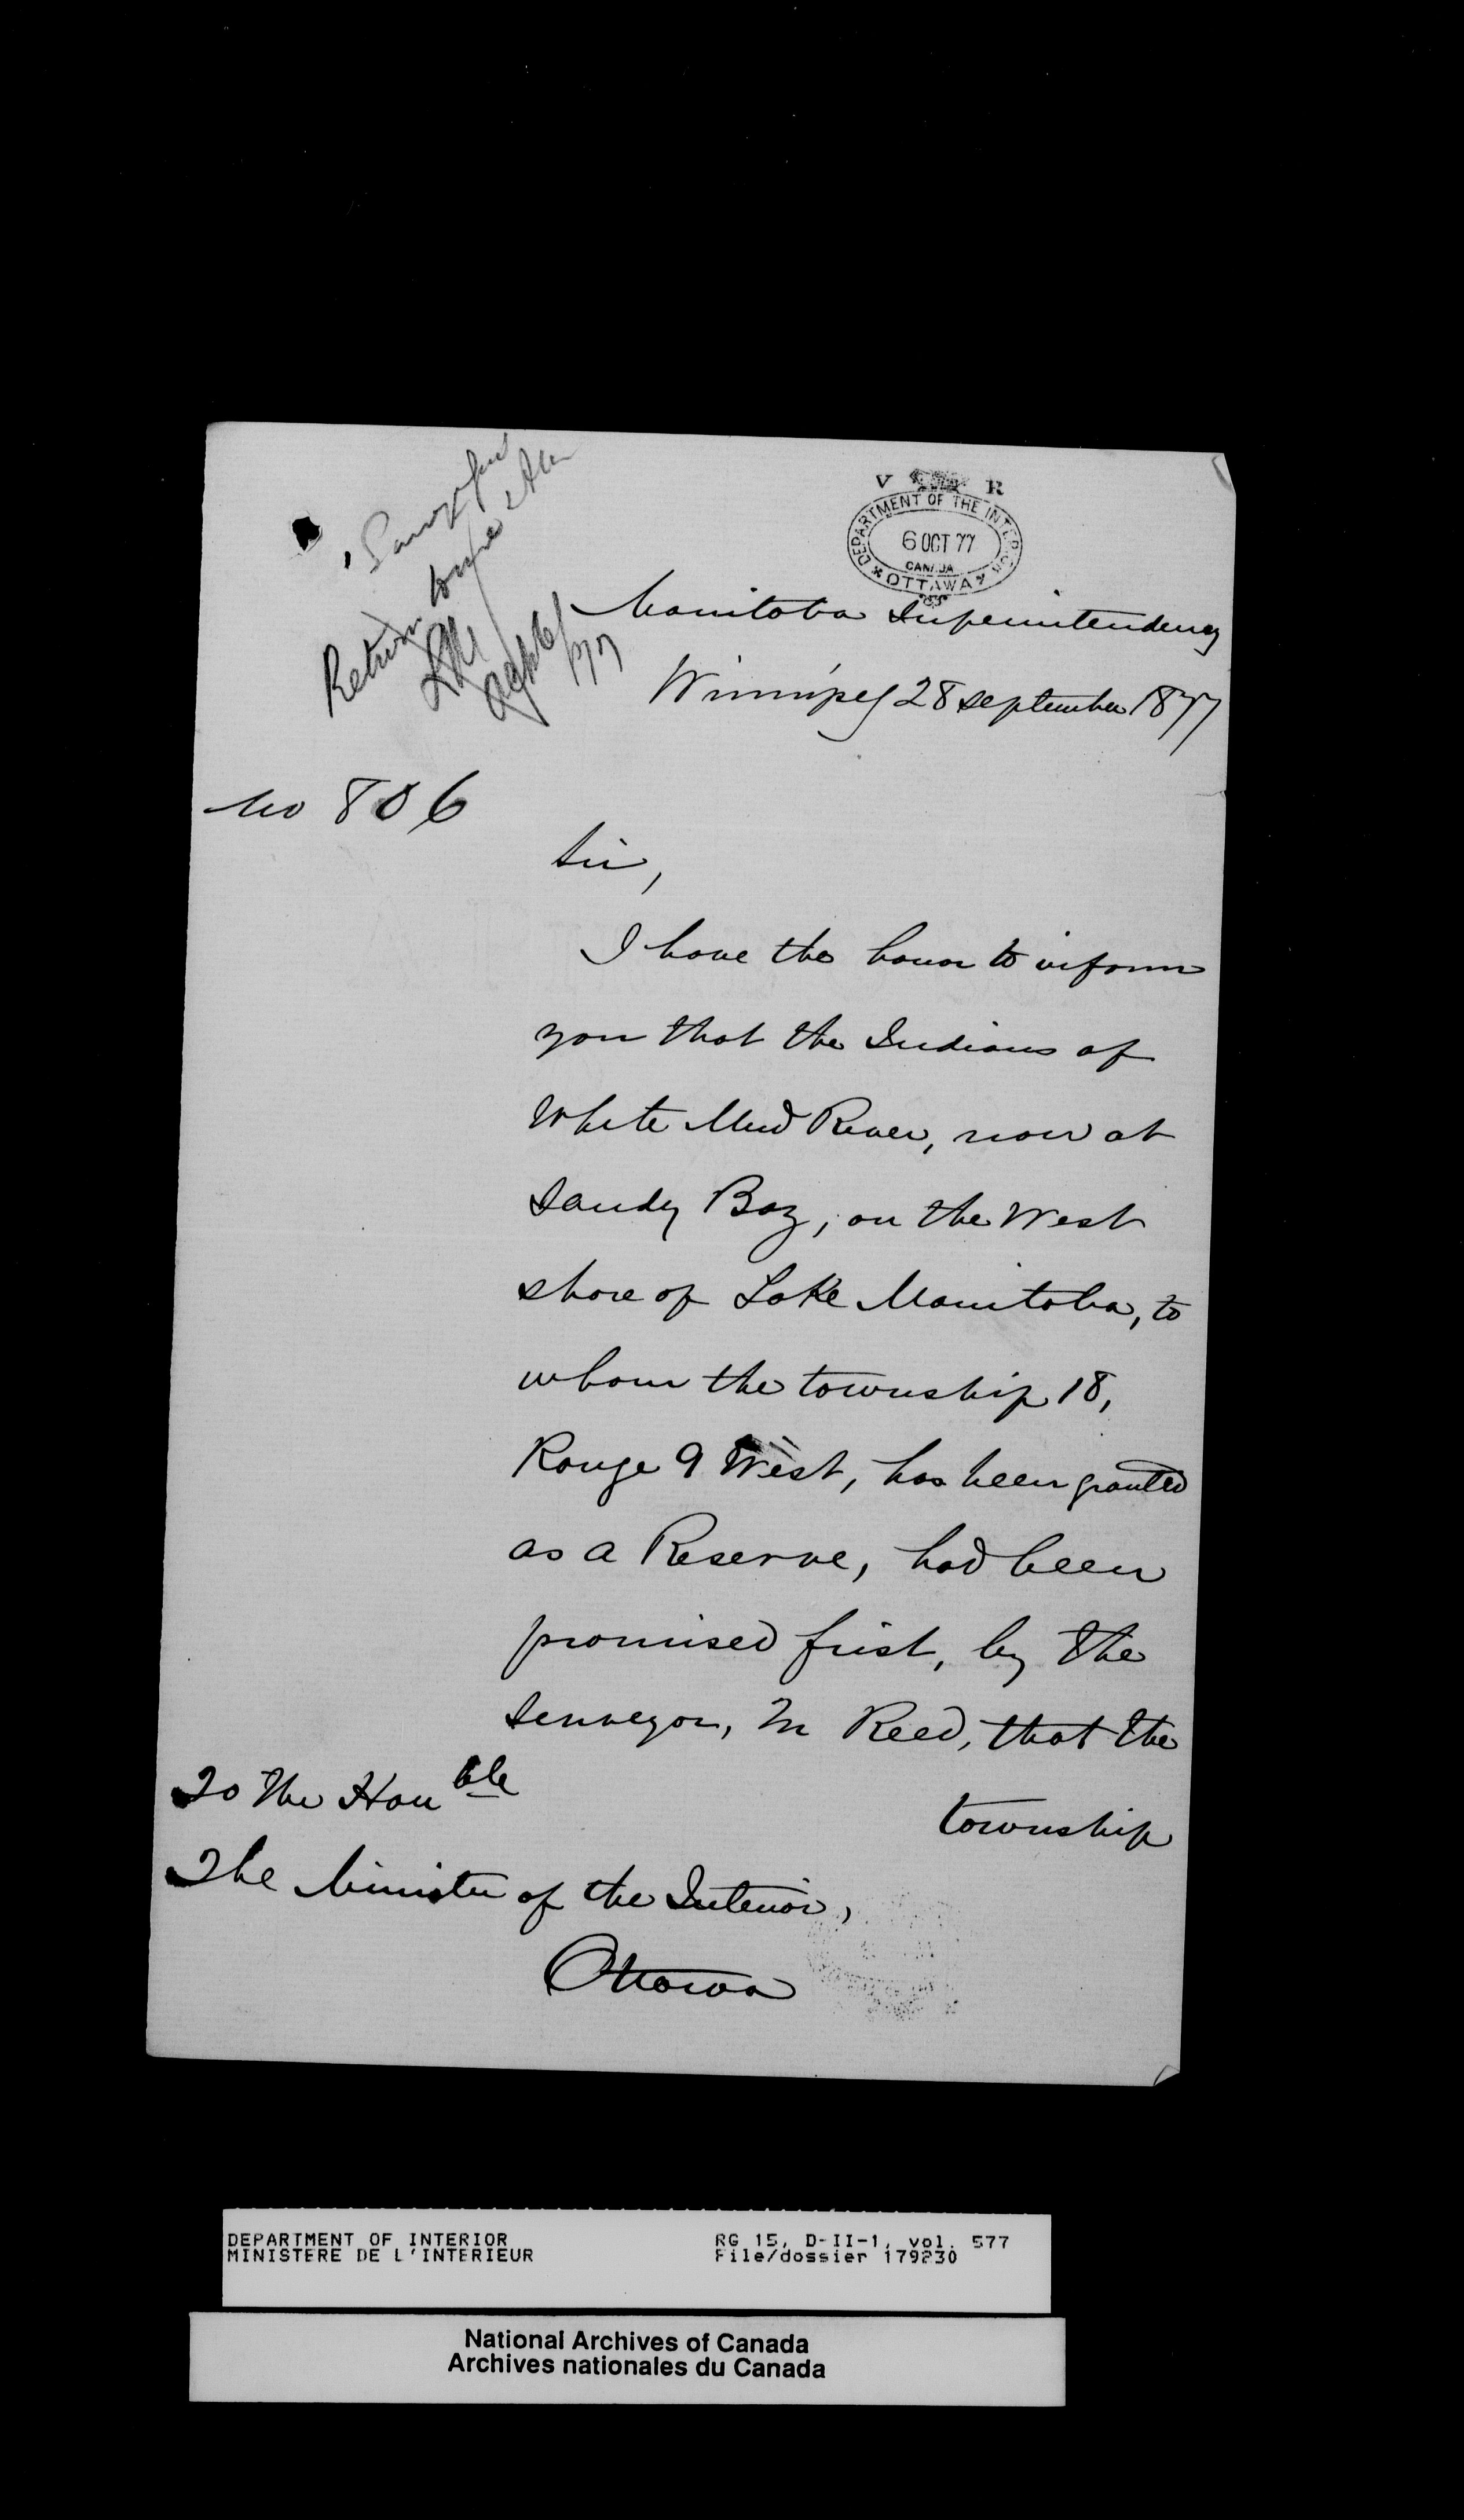 V R
DEPARTMENT OF THE INTERIOR
6 OCT 77
CANADA
OTTAWA
Return
Manitoba Superintendency
Winnipeg 28 September 1877
No 806
Sir,
I have the honor to inform
you that the Indians of
White Mud River, now at
Sandy Bay, on the West
shore of Lake Manitoba, to
whom the township 18,
Range 9 West, has been granted
as a Reserve, had been
promised first, by the
Surveyor, Mr Reed, that the
township
To the Honble
The Minister of the Interior,
Ottawa
DEPARTMENT OF INTERIOR RG 15, D-II-1, vol. 577
MINISTERE DE L'INTERIEUR File/dossier 179230
National Archives of Canada
Archives nationales du Canada